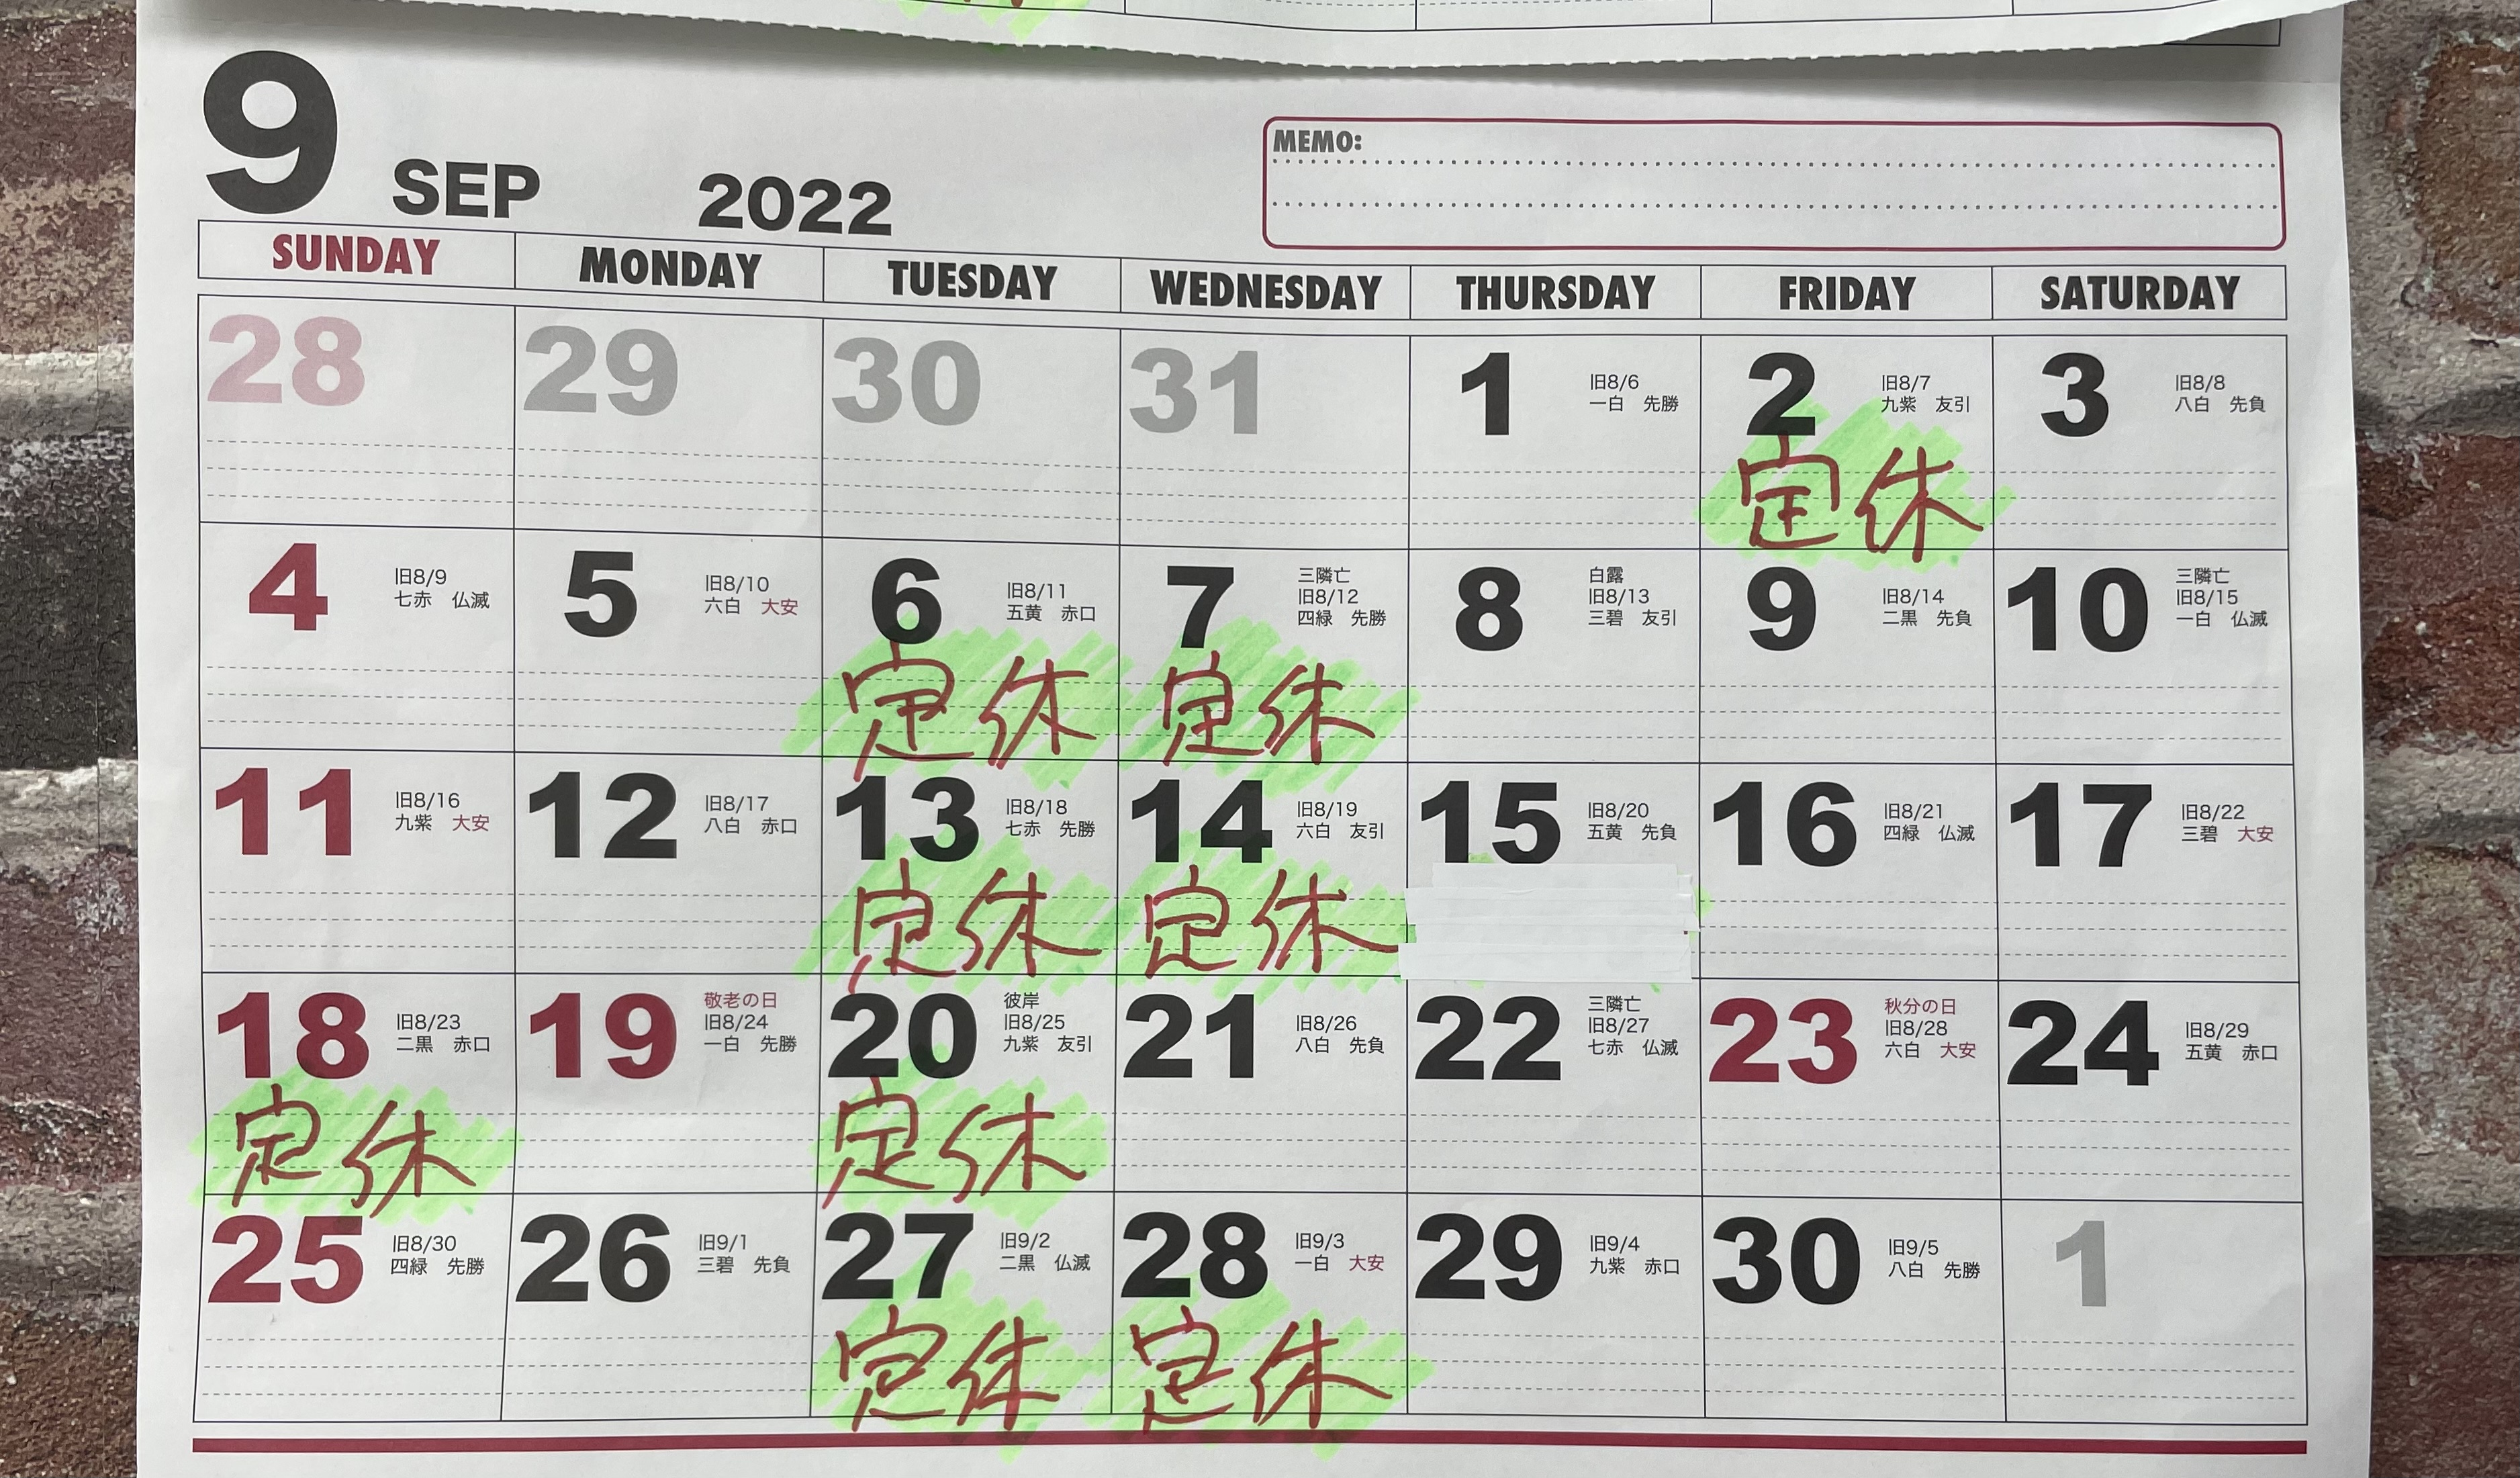 9 SEP 2022
MEMO:
SUNDAY MONDAY TUESDAY WEDNESDAY THURSDAY FRIDAY SATURDAY
28
29
30
31
1
旧8/6
一白 先勝
2
旧8/7
九紫 友引
定休
3
旧8/8
八白 先負
4
旧8/9
七赤 仏滅
5
旧8/10
六白 大安
6
旧8/11
五黄 赤口
定休
7
三隣亡
旧8/12
四緑 先勝
定休
8
白露
旧8/13
三碧 友引
9
旧8/14
二黒 先負
10
三隣亡
旧8/15
一白 仏滅
11
旧8/16
九紫 大安
12
旧8/17
八白 赤口
13
旧8/18
七赤 先勝
定休
14
旧8/19
六白 友引
定休
15
旧8/20
五黄 先負
16
旧8/21
四緑 仏滅
17
旧8/22
三碧 大安
18
旧8/23
二黒 赤口
定休
19
敬老の日
旧8/24
一白 先勝
20
彼岸
旧8/25
九紫 友引
定休
21
旧8/26
八白 先負
22
三隣亡
旧8/27
七赤 仏滅
23
秋分の日
旧8/28
六白 大安
24
旧8/29
五黄 赤口
25
旧8/30
四緑 先勝
26
旧9/1
三碧 先負
27
旧9/2
二黒 仏滅
定休
28
旧9/3
一白 大安
定休
29
旧9/4
九紫 赤口
30
旧9/5
八白 先勝
1